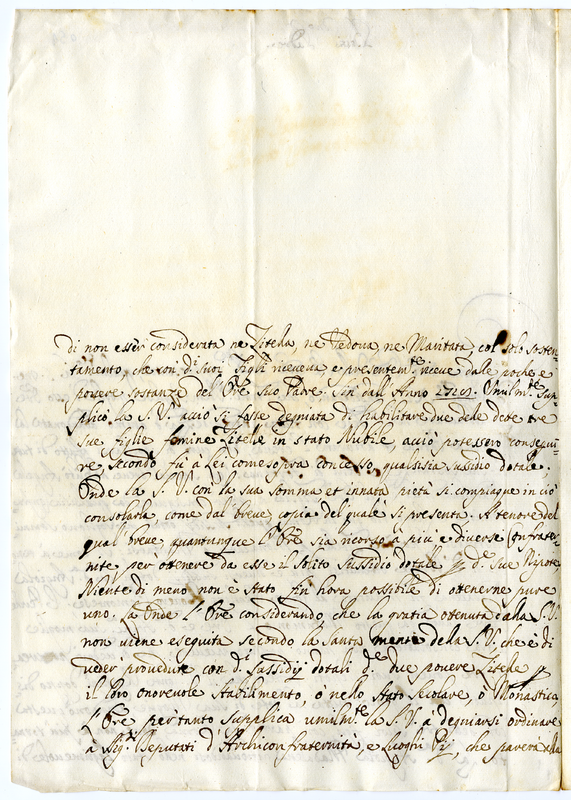 di non esser considerata ne Zitella, ne Vedova, ne Maritata, col solo sosten-
tamento, che con di Suoi Figli riceveva e presentem.te riceve dalle poche e
povere sostanze del Ore suo Padre. Sin dall'Anno Umilm.te sup
plicò la S. V. acciò si fosse degniata di riabilitare due delle dette tre
sue figlie femine Zitelle in stato Nubile, acciò potessero consegui-
re, secondo fù à Lei come sopra concesso, qualsisia sussidio dotale.
Onde la S. V. con la sua somma et innata pietà si compiacque in ciò
consolarla, come dal breve, copia del quale si presenta. A tenore del
qual breve quantunque l'Ore sia ricorso à più e diverse Confrater-
nite per ottenere da esse il solito Sussidio dotale p d.e sue Nipote
Niente di meno non è stato fin hora possibile di ottenerne pure
uno. La Onde l'Ore considerando, che la gratia ottenuta dalla S. V.
non viene eseguita secondo la santa mente della S. V. che è di
veder provedute con d.i Sussidij dotali d.e due povere Zitelle p
il loro onorevole stabilimento, o nello Stato Secolare, o Monastico
L'Ore per tanto supplica umilm.te la S. V. a degniarsi ordinare
à Sig.ri Deputati d'Archiconfraternità, e Luoghi Pij, che